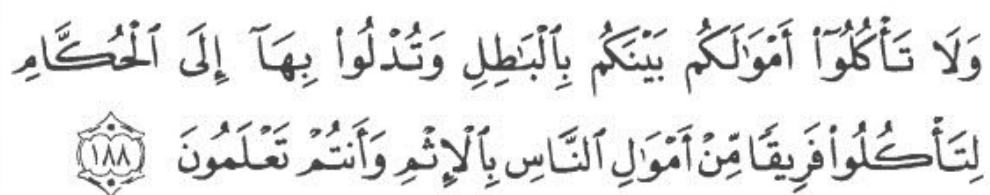 وَلَا تَأۡكُلُوٓاْ أَمۡوَٰلَكُم بَيۡنَكُم بِٱلۡبَٰطِلِ وَتُدۡلُواْ بِهَآ إِلَى ٱلۡحُكَّامِ
لِتَأۡكُلُواْ فَرِيقٗا مِّنۡ أَمۡوَٰلِ ٱلنَّاسِ بِٱلۡإِثۡمِ وَأَنتُمۡ تَعۡلَمُونَ ١٨٨